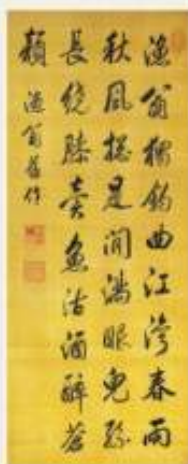 漁翁獨釣曲江灣春雨
秋風總是閒滿眼兒孫
長繞膝賣魚沽酒醉蒼
顏 漁翁舊作